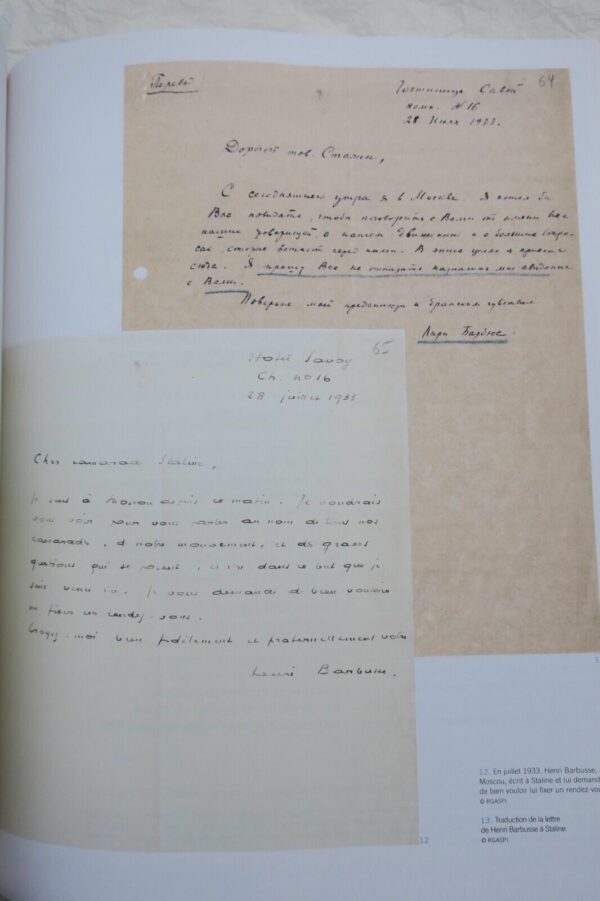 Перевод
64
Гостиница Савой
комн. № 16
28 Июля 1933.
Дорогой тов. Сталин,
С сегодняшнего утра я в Москве. Я хотел бы
Вас повидать, чтобы поговорить с Вами от имени всех
наших товарищей о нашем движении и о больших вопро-
сах, которые встают перед нами. В этих целях я приехал
сюда. Я прошу Вас не отказать назначить мне свидание
с Вами.
Поверьте моей преданности и братским чувствам.
Анри Барбюс.
65
Hotel Savoy
Ch. no 16
28 juillet 1933
Cher camarade Staline,
Je suis à Moscou depuis ce matin. Je voudrais
vous voir pour vous parler au nom de tous nos
camarades, de notre mouvement, et des graves
questions qui se posent, et c'est dans ce but que je
suis venu ici. Je vous demande de bien vouloir
me fixer un rendez-vous.
Croyez-moi bien fidèlement et fraternellement votre
Henri Barbusse.
12
12. En juillet 1933, Henri Barbusse,
Moscou, écrit à Staline et lui demand
de bien vouloir lui fixer un rendez-vou
© RGASPI
13. Traduction de la lettre
de Henri Barbusse à Staline.
© RGASPI